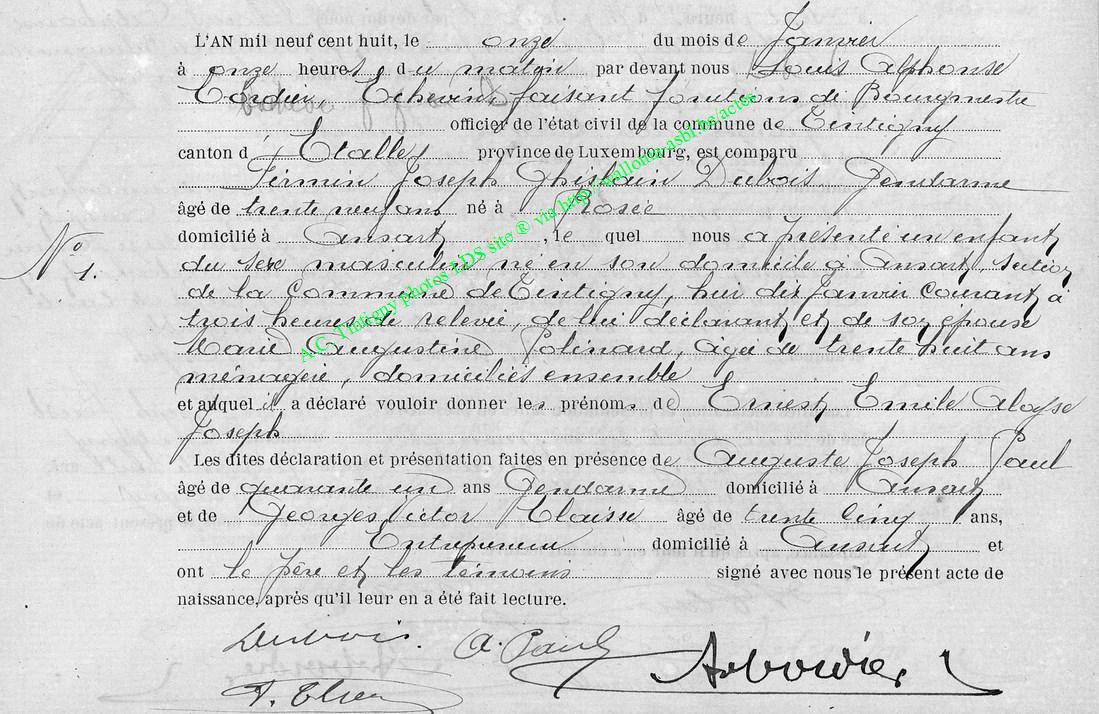 L'AN mil neuf cent huit, le onze du mois de Janvier
à onze heures du matin par devant nous Louis Alphonse
Echevin faisant fonctions de Bourgmestre
officier de l'état civil de la commune de Tintigny
canton d'Etalle, province de Luxembourg, est comparu
Firmin Joseph Ghislain Dubois, Gendarme
âgé de trente neuf ans né à Rosée
domicilié à Ansart, le quel nous a présenté un enfant
No 1.
du sexe masculin né en son domicile à Ansart, section
de la commune de Tintigny, hier dix Janvier courant à
trois heures de relevée, de lui déclarant et de son épouse
Marie Augustine Polinard, âgée de trente huit ans
ménagère, domiciliés ensemble
et auquel il a déclaré vouloir donner les prénoms de Ernest Emile Aloyse
Joseph
Les dites déclaration et présentation faites en présence de Auguste Joseph Paul
âgé de quarante un ans Gendarme domicilié à Ansart
et de Georges Victor âgé de trente cinq ans,
Entrepreneur domicilié à Ansart et
ont le père et les témoins signé avec nous le présent acte de
naissance, après qu'il leur en a été fait lecture.
Dubois. A. Paul
A.C. Tintigny photos LDS site ® via http://wallonia-asbl.be/actes